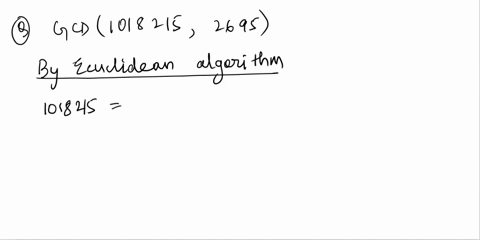 Q GCD (1018215, 2695)
By Ecuclidean algorithm
101845 =